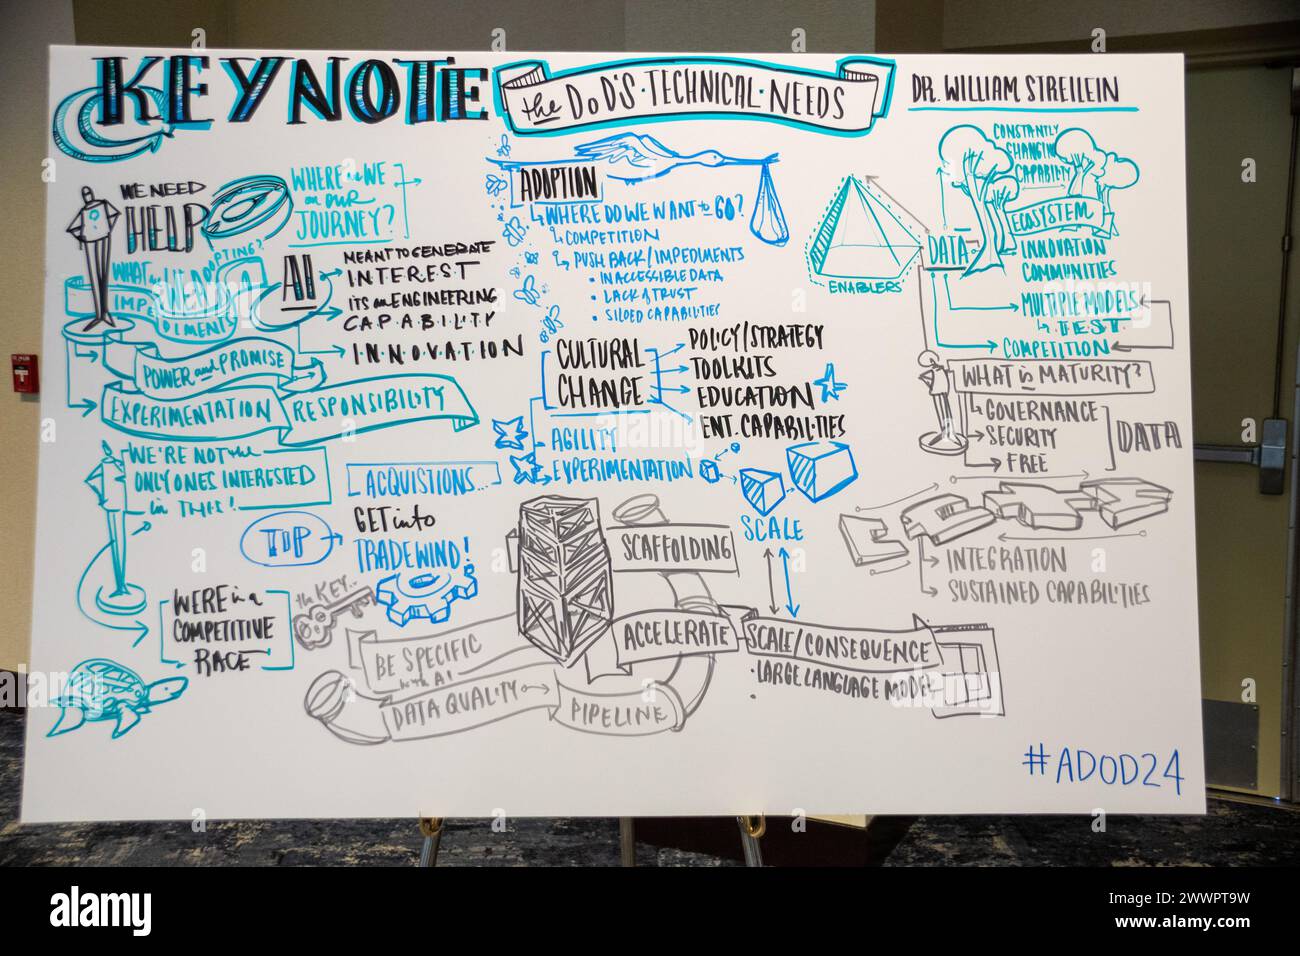 KEYNOTE
the DoD'S · TECHNICAL · NEEDS
DR. WILLIAM STREILEIN
WE NEED
HELP
WHERE is WE
on our
JOURNEY?
AI
MEANT to GENERATE
INTEREST
ITS an ENGINEERING
CAPABILITY
I·N·N·O·V·A·T·I·O·N
WHAT
IMPE
DIMENTS
POWER and PROMISE
EXPERIMENTATION
RESPONSIBILITY
WE'RE NOT the
ONLY ONES INTERESTED
in THIS!
ACQUISTIONS...
TOP
GET into
TRADEWIND!
WERE in a
COMPETITIVE
RACE
the KEY...
BE SPECIFIC
with AI
DATA QUALITY
PIPELINE
ADOPTION
WHERE DO WE WANT to GO?
COMPETITION
PUSH BACK/IMPEDMENTS
• INACCESSIBLE DATA
• LACK of TRUST
• SILOED CAPABILITIES
CULTURAL
CHANGE
POLICY/STRATEGY
TOOLKITS
EDUCATION
ENT. CAPABILITIES
AGILITY
EXPERIMENTATION
SCALE
SCAFFOLDING
ACCELERATE
SCALE/CONSEQUENCE
• LARGE LANGUAGE MODEL
ENABLERS
DATA
CONSTANTLY
CHANGING
CAPABILITY
ECOSYSTEM
INNOVATION
COMMUNITIES
MULTIPLE MODELS
TEST
COMPETITION
WHAT is MATURITY?
GOVERNANCE
SECURITY
FREE
DATA
INTEGRATION
SUSTAINED CAPABILITIES
#ADOD24
alamy
Image ID: 2WWPT9W
www.alamy.com